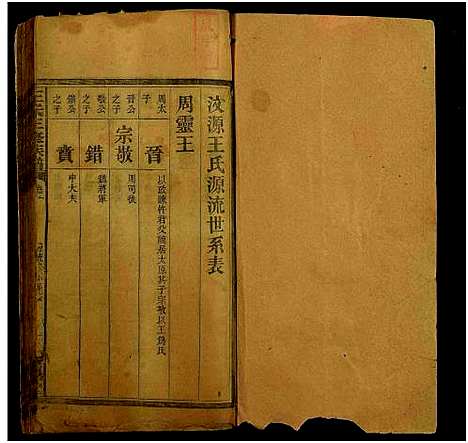 汶源王氏源流世系表
周靈王
周太子
晉
以政諫忤君父隨居太原其子宗敬以王爲氏
晉公之子
宗敬
周司徒
敬公之子
錯
魏將軍
錯公之子
賁
中大夫